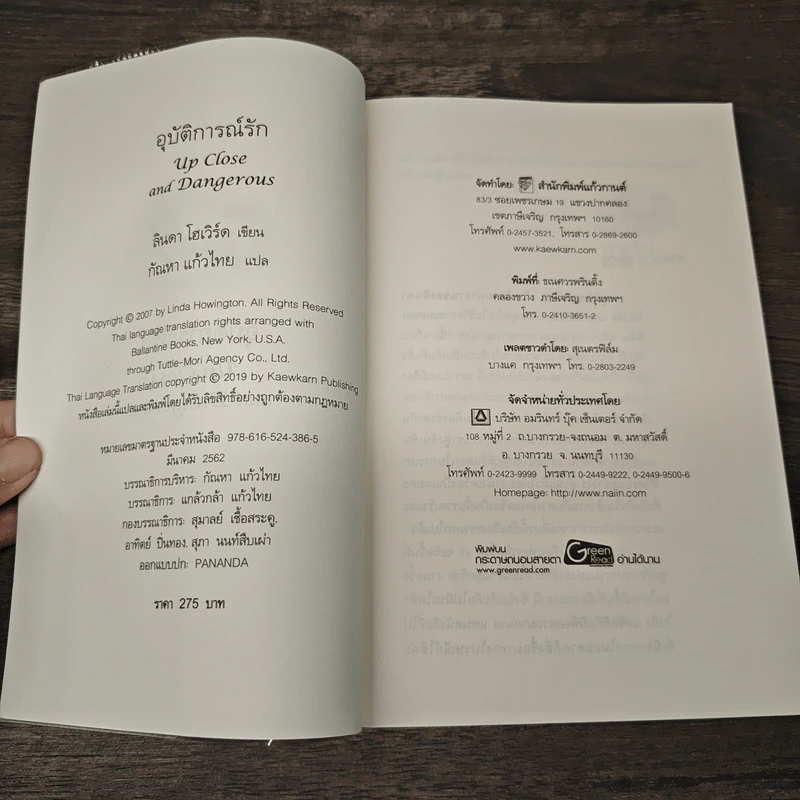 อุบัติการณ์รัก
Up Close
and Dangerous
ลินดา โฮเวิร์ด เขียน
กัณหา แก้วไทย แปล
Copyright © 2007 by Linda Howington. All Rights Reserved
Thai language translation rights arranged with
Ballantine Books, New York, U.S.A.
through Tuttle-Mori Agency Co., Ltd.
Thai Language Translation copyright © 2019 by Kaewkarn Publishing
หนังสือเล่มนี้แปลและพิมพ์โดยได้รับลิขสิทธิ์อย่างถูกต้องตามกฎหมาย
หมายเลขมาตรฐานประจำหนังสือ 978-616-524-386-5
มีนาคม 2562
บรรณาธิการบริหาร: กัณหา แก้วไทย
บรรณาธิการ: แกล้วกล้า แก้วไทย
กองบรรณาธิการ: สุมาลย์ เชื้อสระคู,
อาทิตย์ ปิ่นทอง, สุภา นนท์สืบเผ่า
ออกแบบปก: PANANDA
ราคา 275 บาท
จัดทำโดย: สำนักพิมพ์แก้วกานต์
83/3 ซอยเพชรเกษม 19 แขวงปากคลอง
เขตภาษีเจริญ กรุงเทพฯ 10160
โทรศัพท์ 0-2457-3521, โทรสาร 0-2869-2600
www.kaewkarn.com
พิมพ์ที่: ธเนศวรพรินติ้ง
คลองขวาง ภาษีเจริญ กรุงเทพฯ
โทร. 0-2410-3651-2
เพลตขาวดำโดย: สุเนตรฟิล์ม
บางแค กรุงเทพฯ โทร. 0-2803-2249
จัดจำหน่ายทั่วประเทศโดย
บริษัท อมรินทร์ บุ๊ค เซ็นเตอร์ จำกัด
108 หมู่ที่ 2 ถ.บางกรวย-จงถนอม ต. มหาสวัสดิ์
อ. บางกรวย จ. นนทบุรี 11130
โทรศัพท์ 0-2423-9999 โทรสาร 0-2449-9222, 0-2449-9500-6
Homepage: http://www.naiin.com
พิมพ์บน
กระดาษถนอมสายตา Green Read อ่านได้นาน
www.greenread.com